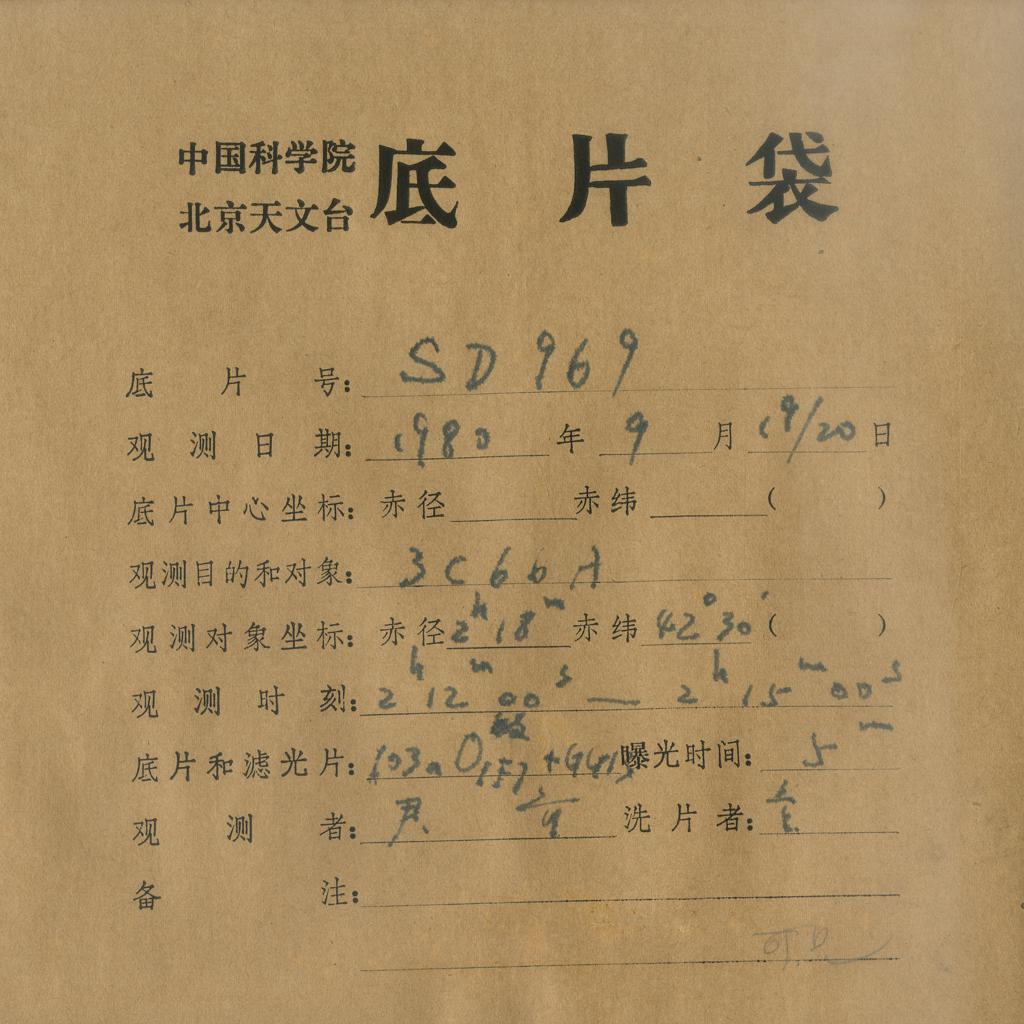 中国科学院
北京天文台
底片袋
底片号：SD969
观测日期：1980年9月19/20日
底片中心坐标：赤径 赤纬 （ ）
观测目的和对象：3C66A
观测对象坐标：赤径2h18m赤纬42°30′（ ）
观测时刻：2h12m00s—2h15m00s
底片和滤光片：103aO +G413曝光时间：5m
观测者： 洗片者：
备注：